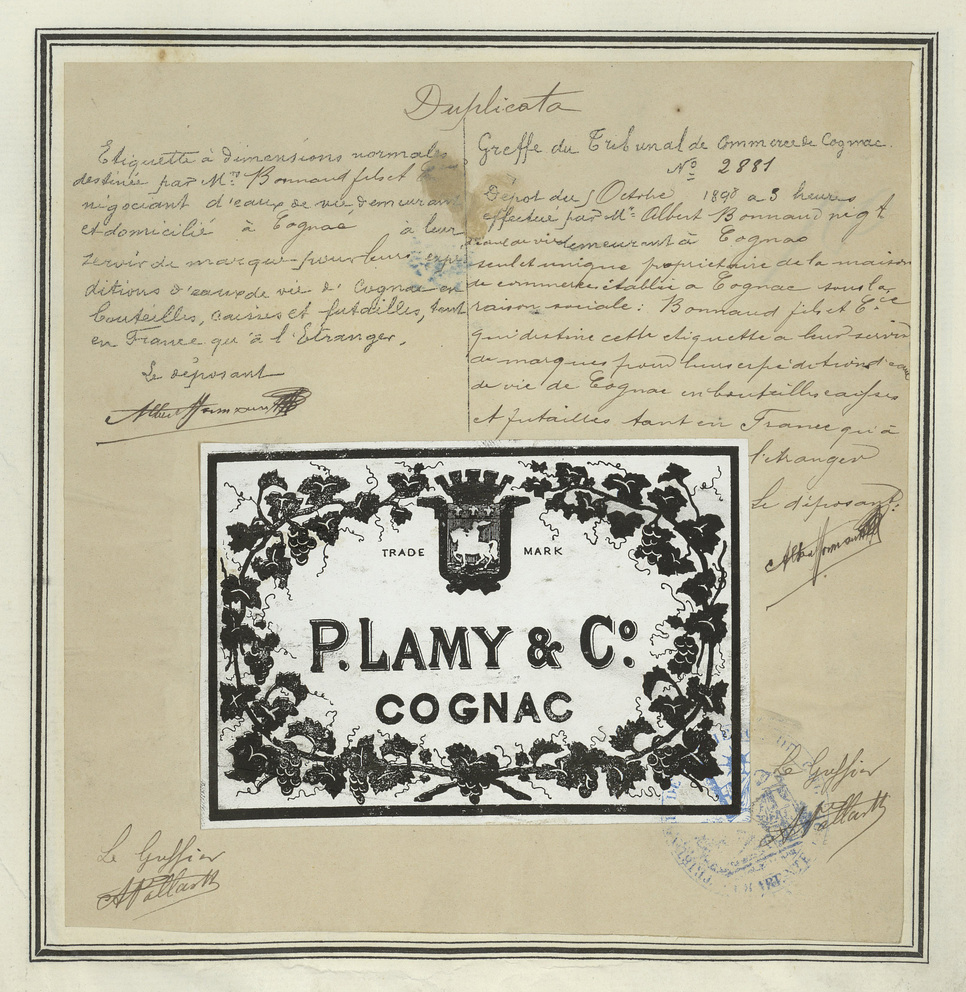 Duplicata
Etiquette à dimensions normales
destinée par Mr. Bonnaud fils et
négociant d'eaux de vie demeurant
et domicilié à Cognac à leur
servir de marque pour leurs expé
ditions d'eaux de vie de Cognac en
bouteilles, caisses et futailles, tant
en France qu'à l'Etranger.
Le déposant
Greffe du Tribunal de Commerce de Cognac.
No 2881
Dépot du 5 Octobre 1898 à 3 heures
effectué par Mr. Albert Bonnaud négt
demeurant à Cognac
seul et unique propriétaire de la maison
de commerce établie à Cognac sous la
raison sociale: Bonnaud fils et Cie
qui destine cette étiquette à leur servir
de marques pour leurs expéditions d'eau
de vie de Cognac en bouteilles caisses
et futailles tant en France qu'à
l'étranger
Le déposant
TRADE MARK
P. LAMY & Co.
COGNAC
Le Greffier
Le Greffier